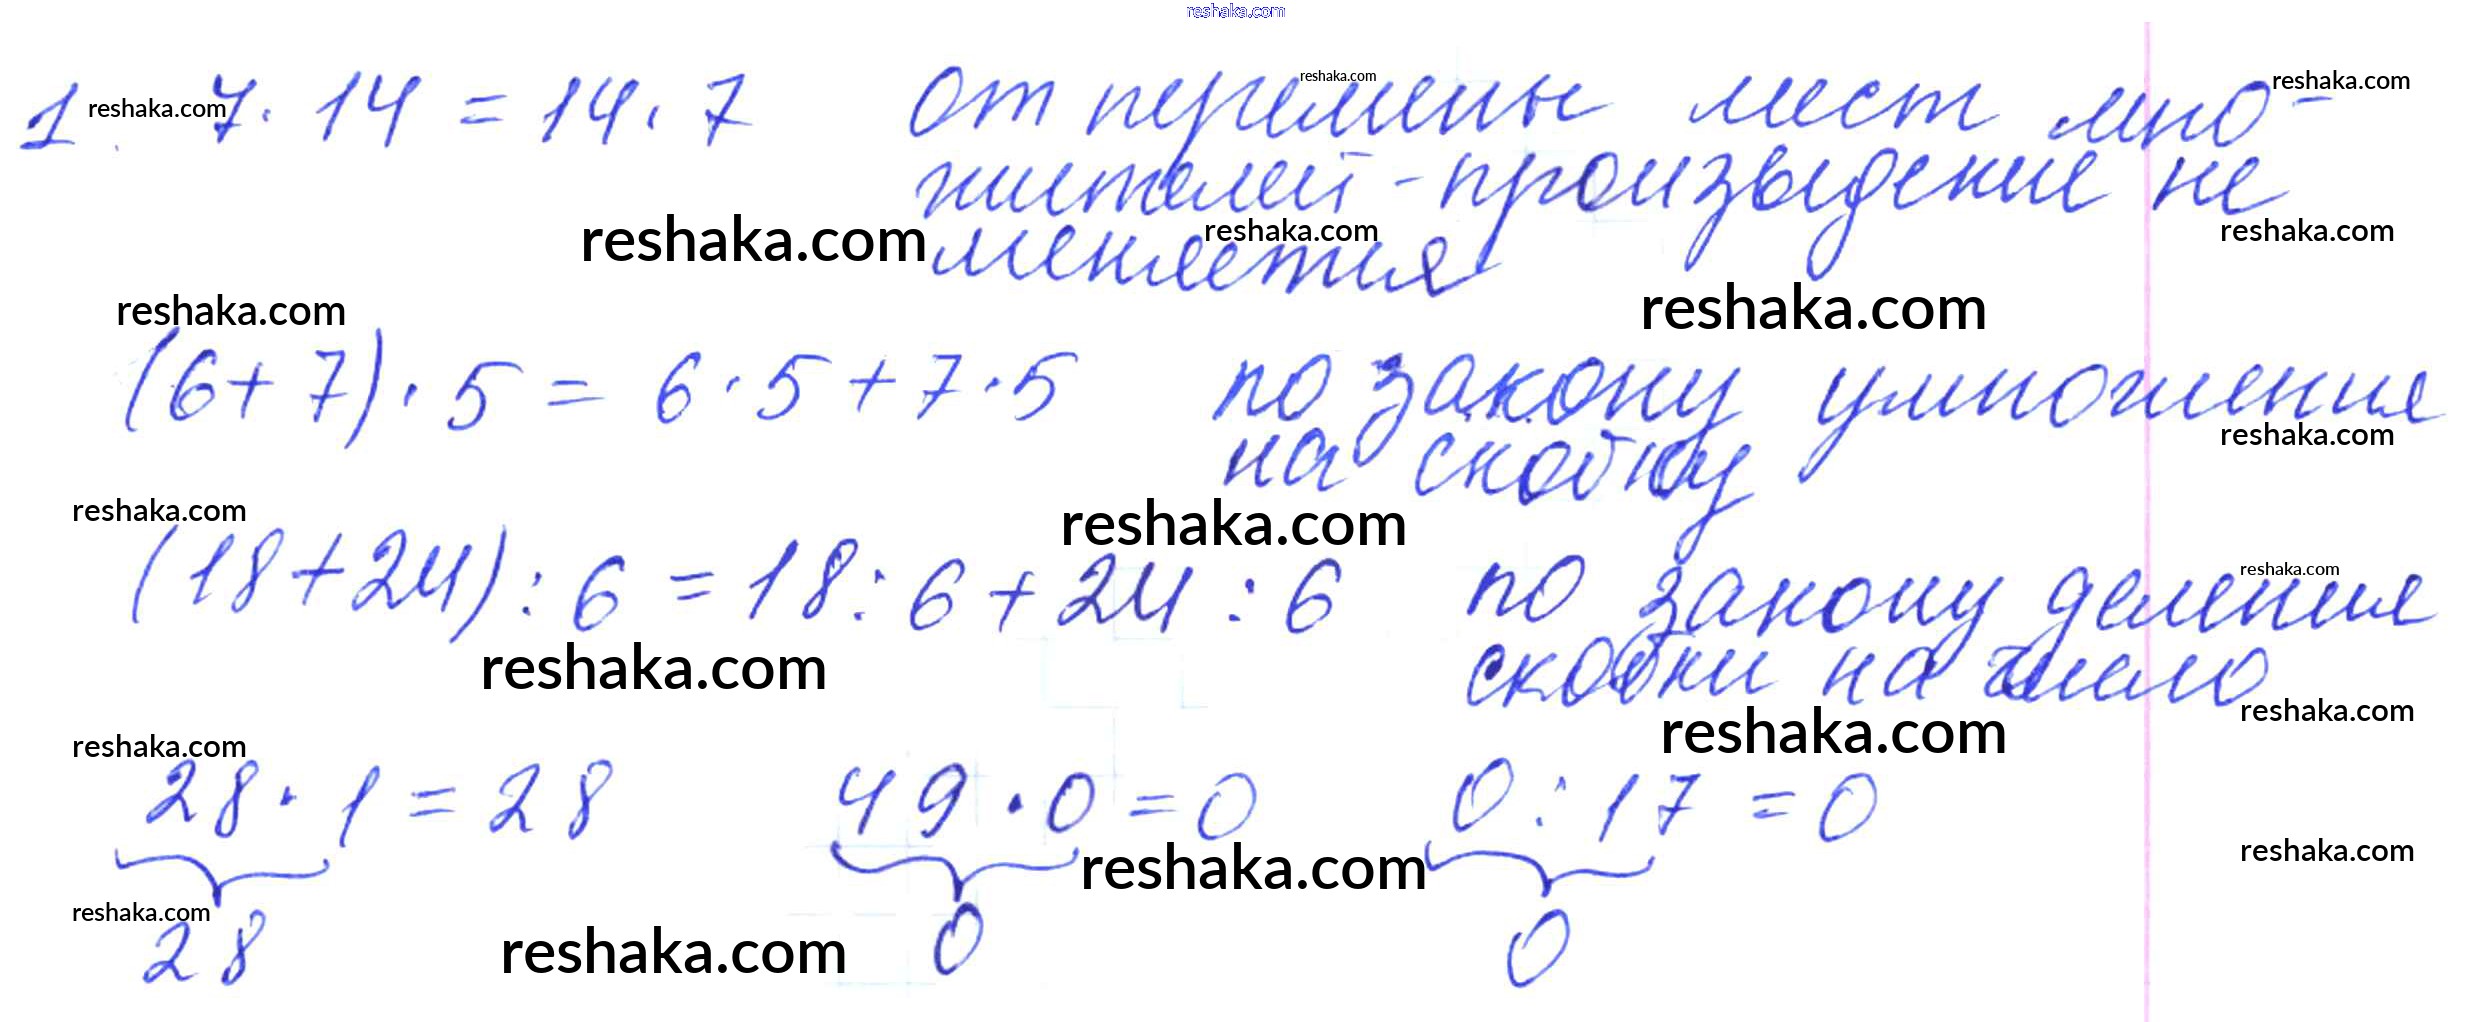 reshaka.com
1 reshaka.com 7 · 14 = 14 · 7 От перемены мест мно- reshaka.com reshaka.com
жителей - произведение не
reshaka.com меняется reshaka.com reshaka.com
reshaka.com reshaka.com
(6 + 7) · 5 = 6 · 5 + 7 · 5 по закону умножения
на скобку reshaka.com
reshaka.com reshaka.com
(18 + 24) : 6 = 18 : 6 + 24 : 6 по закону деления reshaka.com
reshaka.com скобки на число
reshaka.com reshaka.com
reshaka.com
28 · 1 = 28 49 · 0 = 0 0 : 17 = 0
reshaka.com reshaka.com
reshaka.com
28 reshaka.com 0 0